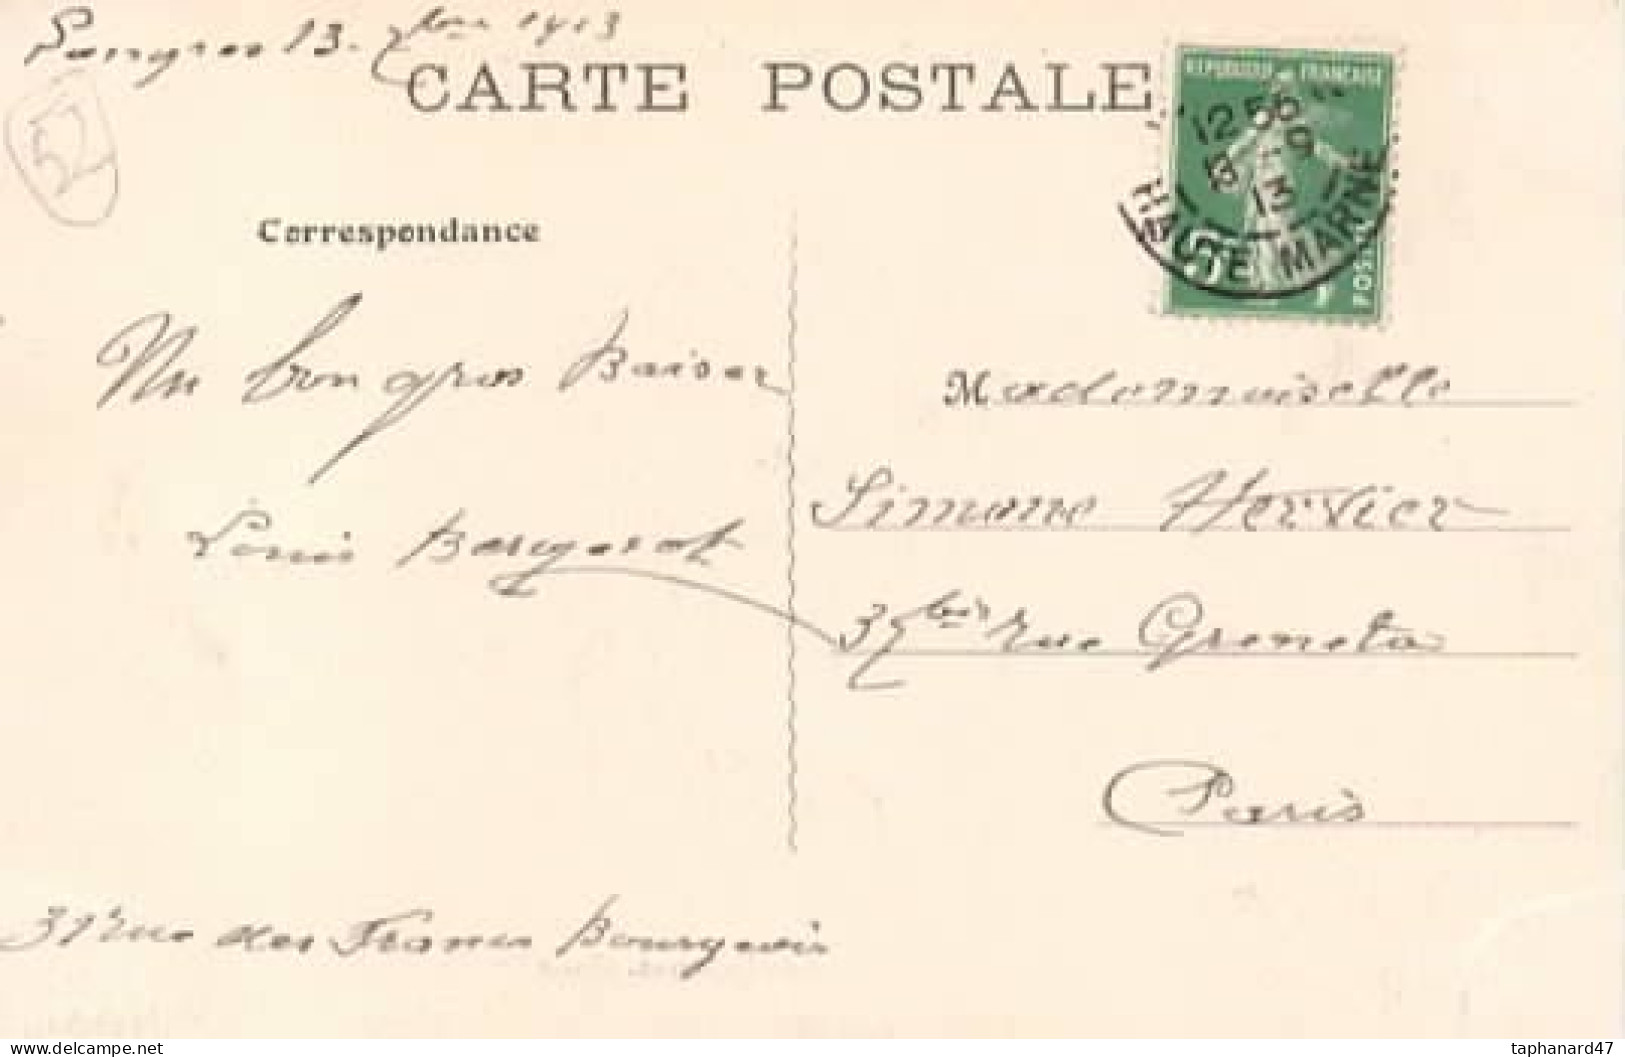 Langres 13. 7bre 1913
CARTE POSTALE
52
REPUBLIQUE FRANÇAISE
12 55
13 -9
13
HAUTE MARNE
Correspondance
Un bon gros Baiser
Mademoiselle
Simone Hervier
Louis
37 bis rue Greneta
Paris
31 rue des Francs Bourgeois
taphanard47
www.delcampe.net